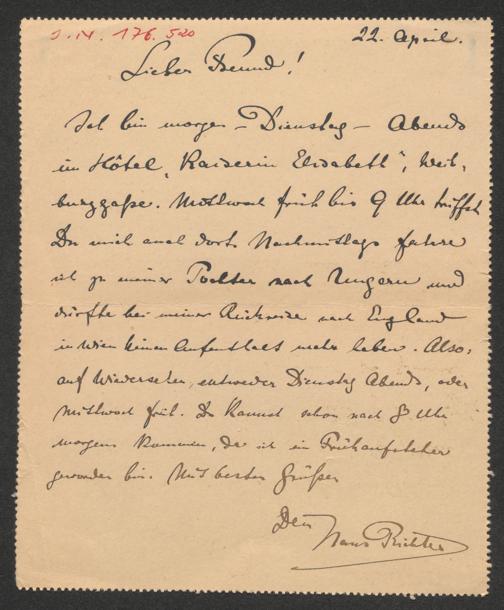 I.N. 176.520
22. April.
Lieber Freund!
Ich bin morgen – Dienstag – Abends
im Hôtel „Kaiserin Elisabeth“, Weih-
burggaße. Mittwoch früh bis 9 Uhr triffst
Du mich auch dort. Nachmittags fahre
ich zu meiner Tochter nach Ungarn und
dürfte bei meiner Rückreise nach England
in Wien keinen Aufenthalt mehr haben. Also:
auf Wiedersehen, entweder Dienstag Abends, oder
Mittwoch früh. Du kannst schon nach 8 Uhr
morgens kommen, da ich ein Frühaufsteher
geworden bin. Mit besten Grüßen
Dein
Hans Richter